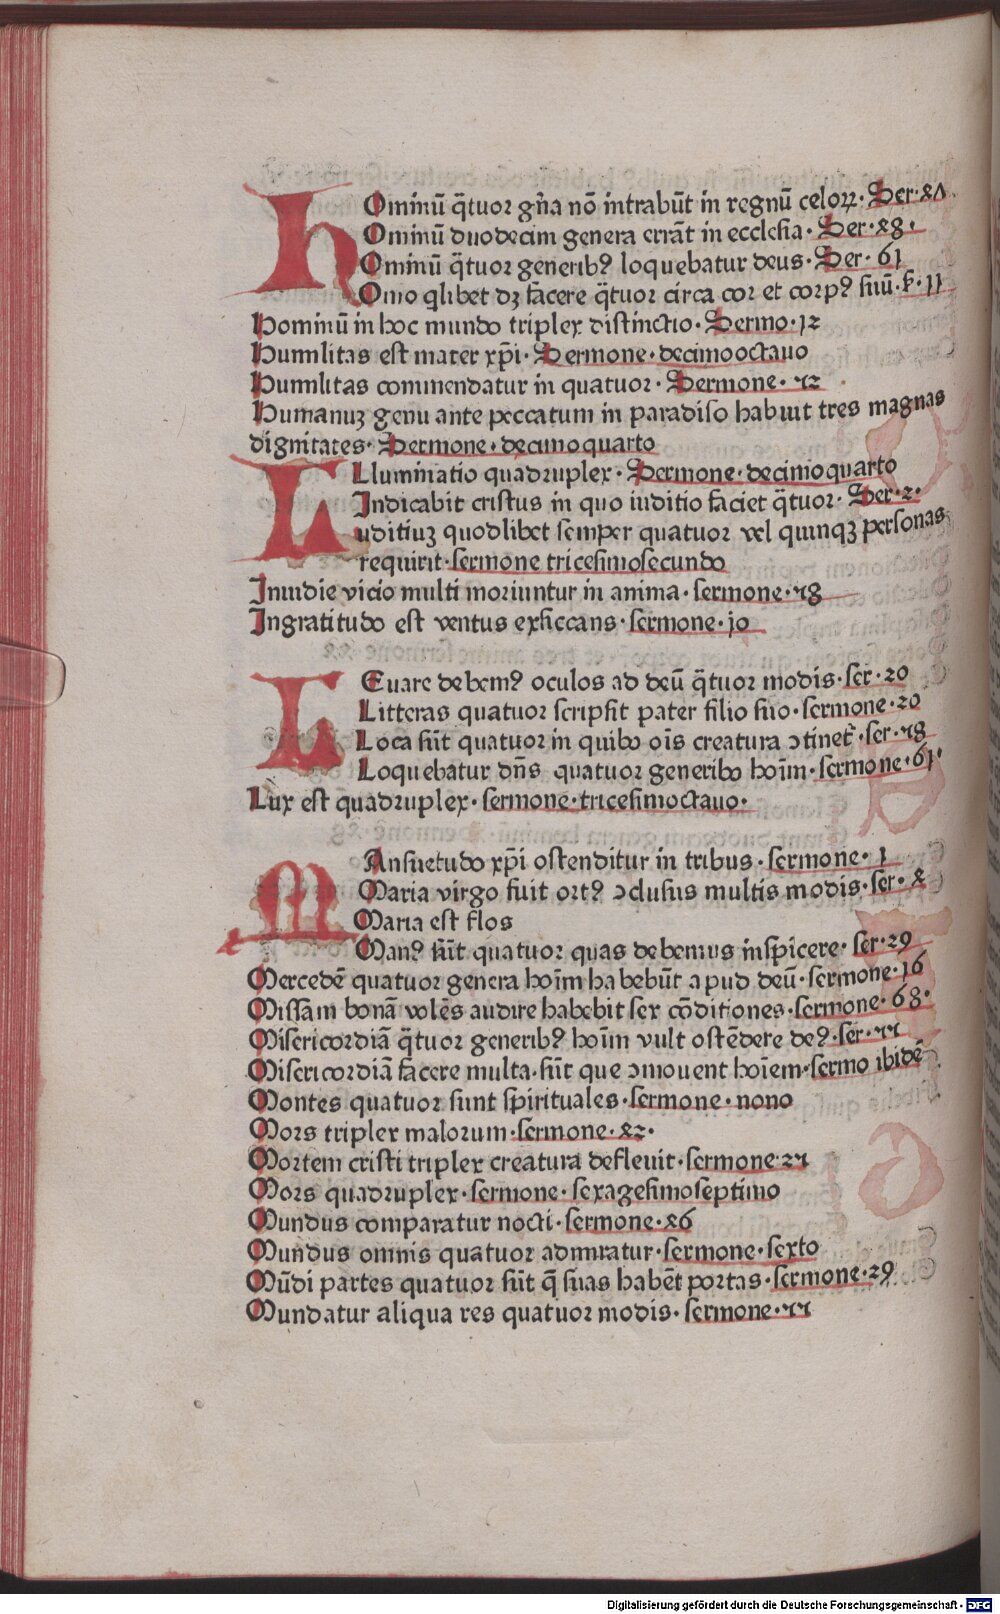 HOminū q̄tuor gn̄a nō intrabūt in regnū celoꝝ· Ser·ꝝΛ·
Ominū duodecim genera errāt in ecclesia· Ser·ꝝ8·
Ominū q̄tuor generibꝰ loquebatur deus· Ser· 61
Omo qlibet dꝫ facere q̄tuor circa cor et corpꝰ suū·
Hominū in hoc mundo triplex distinctio· Sermo·12
Humilitas est mater xp̄i· Sermone·decimooctauo
Humilitas commendatur in quatuor· Sermone·
Humanuꝫ genu ante peccatum in paradiso habuit tres magnas
dignitates· Sermone·decimoquarto
Lluminatio quadruplex· Sermone·decimoquarto
Indicabit cristus in quo iuditio faciet q̄tuor· Ser·2·
uditiuꝫ quodlibet semper quatuor vel quinqꝫ personas
requirit·sermone tricesimosecundo
Inuidie vicio multi moriuntur in anima·sermone·
Ingratitudo est ventus exsiccans·sermone·10
LEuare debemꝰ oculos ad deū q̄tuor modis·ser·20
Litteras quatuor scripsit pater filio suo·sermone·20
Loca sūt quatuor in quibꝰ oīs creatura ꝯtinet·ser·
Loquebatur dn̄s quatuor generibꝰ hoīm·sermone·61·
Lux est quadruplex·sermone·tricesimoctauo·
MAnsuetudo xp̄i ostenditur in tribus·sermone·1
Maria virgo fuit ortꝰ ꝯclusus multis modis·ser·
Maria est flos
Manꝰ sūt quatuor quas debemus inspicere·ser·29
Mercedē quatuor genera hoīm habebūt apud deū·sermone·16
Missam bonā volēs audire habebit sex cōditiones·sermone·68·
Misericordiā q̄tuor generibꝰ hoīm vult ostēdere deꝰ·ser·
Misericordiā facere multa·sūt que ꝯmouent hoīem·sermo ibidē
Montes quatuor sunt spirituales·sermone·nono
Mors triplex malorum·sermone·
Mortem cristi triplex creatura defleuit·sermone
Mors quadruplex·sermone·sexagesimoseptimo
Mundus comparatur nocti·sermone·
Mundus omnis quatuor admiratur·sermone·sexto
Mūdi partes quatuor sūt q̄ suas habēt portas·sermone·29
Mundatur aliqua res quatuor modis·sermone·
Digitalisierung gefördert durch die Deutsche Forschungsgemeinschaft · DFG